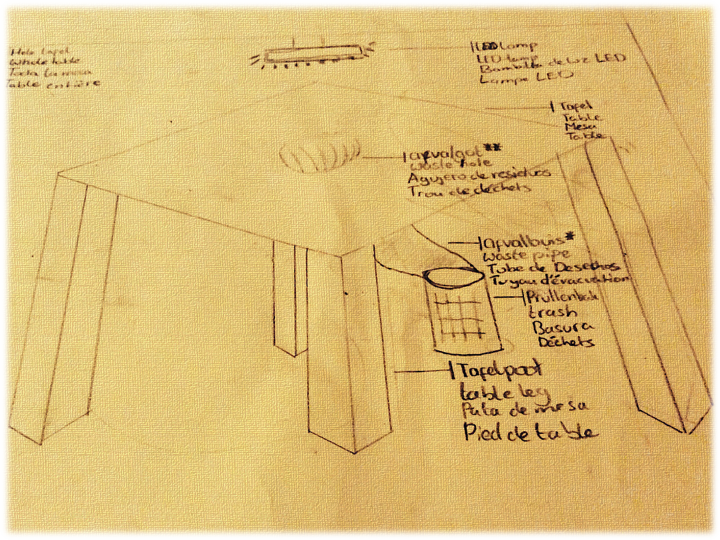 Hele tafel
Whole table
Toda la mesa
Table entière
LED lamp
LED lamp
Bombilla de luz LED
Lampe LED
Tafel
Table
Mesa
Table
afvalgat**
waste hole
Agujero de residuos
Trou de déchets
afvalbuis*
waste pipe
Tubo de Desechos
Tuyau d'évacuation
Prullenbak
trash
Basura
Déchets
Tafelpoot
table leg
Pata de mesa
Pied de table